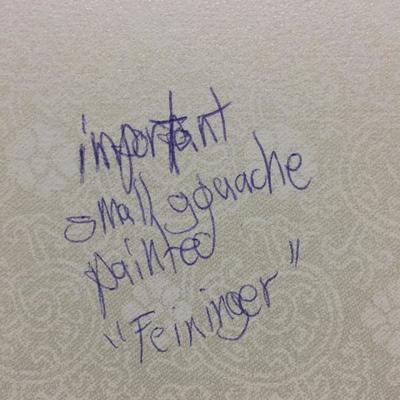 important
small gouache
painted
"Feininger"